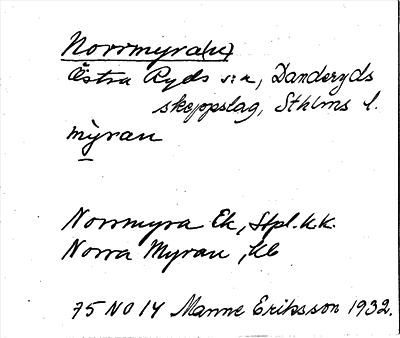 Norrmyra(n)
Östra Ryds s:n, Danderyds
skeppslag, Sthlms l.
mỳran
Norrmyra Ek, Stpl.k.k.
Norra Myran, Kb
75 NO 14 Manne Eriksson 1932.